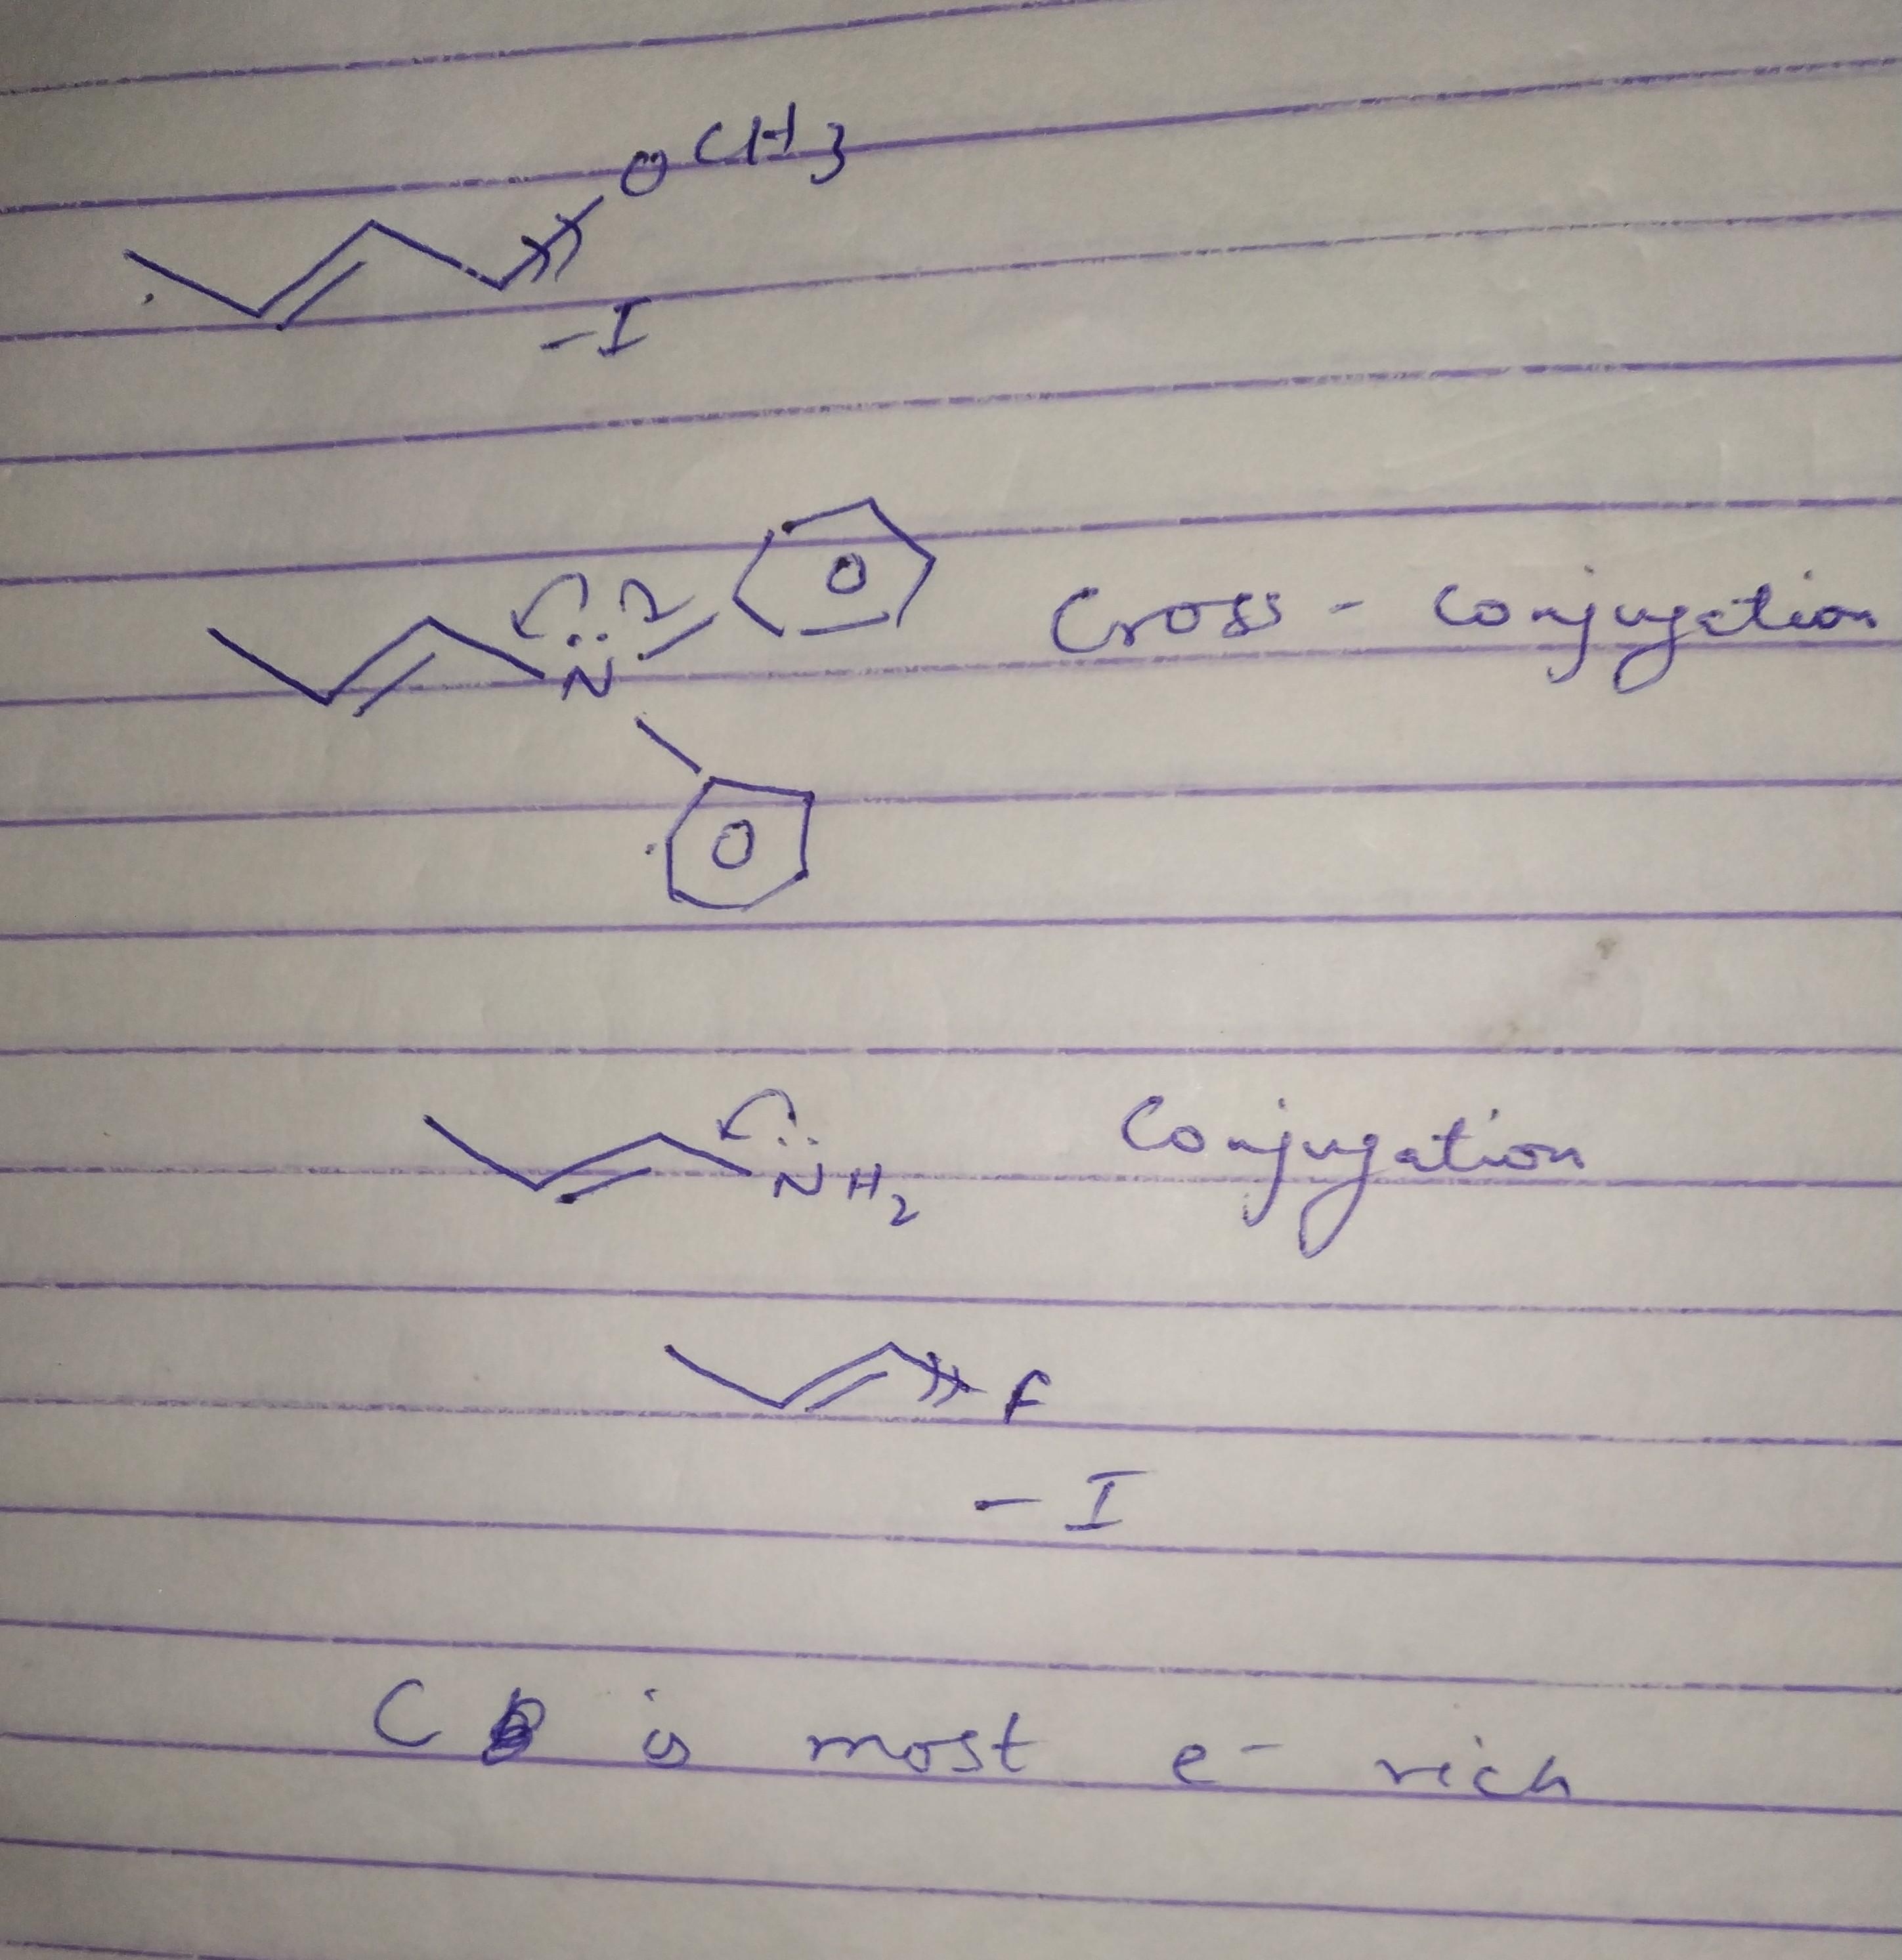 OCH3
-I
N Cross - Conjugation
NH2 Conjugation
F
- I
C is most e- rich